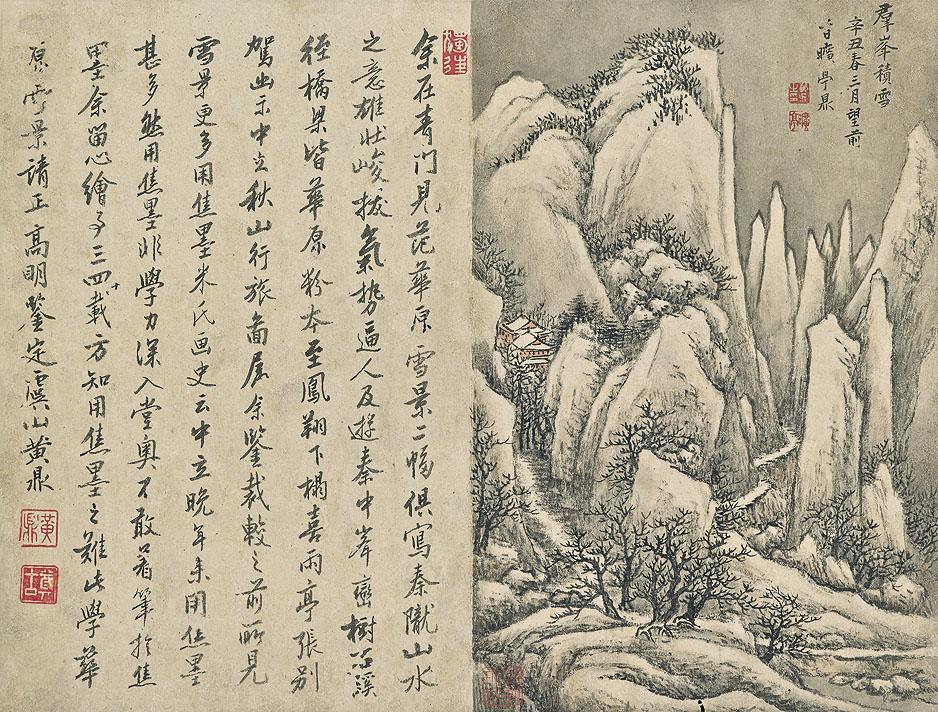 羣峯積雪
辛丑春三月望前
曠亭鼎
余在青門見范華原雪景二幅俱寫秦隴山水
之意雄壯峻拔氣勢逼人及遊秦中峯巒樹石溪
徑橋梁皆華原粉本至鳳翔下榻喜雨亭張別
駕出示中立秋山行旅啚屬余鑒裁較之前所見
雪景更多用焦墨米氏画史云中立晚年多用焦墨
甚多然用焦墨非學力深入堂奧不敢着筆於焦
墨余留心繪事三四十載方知用焦墨之難此學華
原雪景請正高明鑒定虞山黄鼎
黄鼎